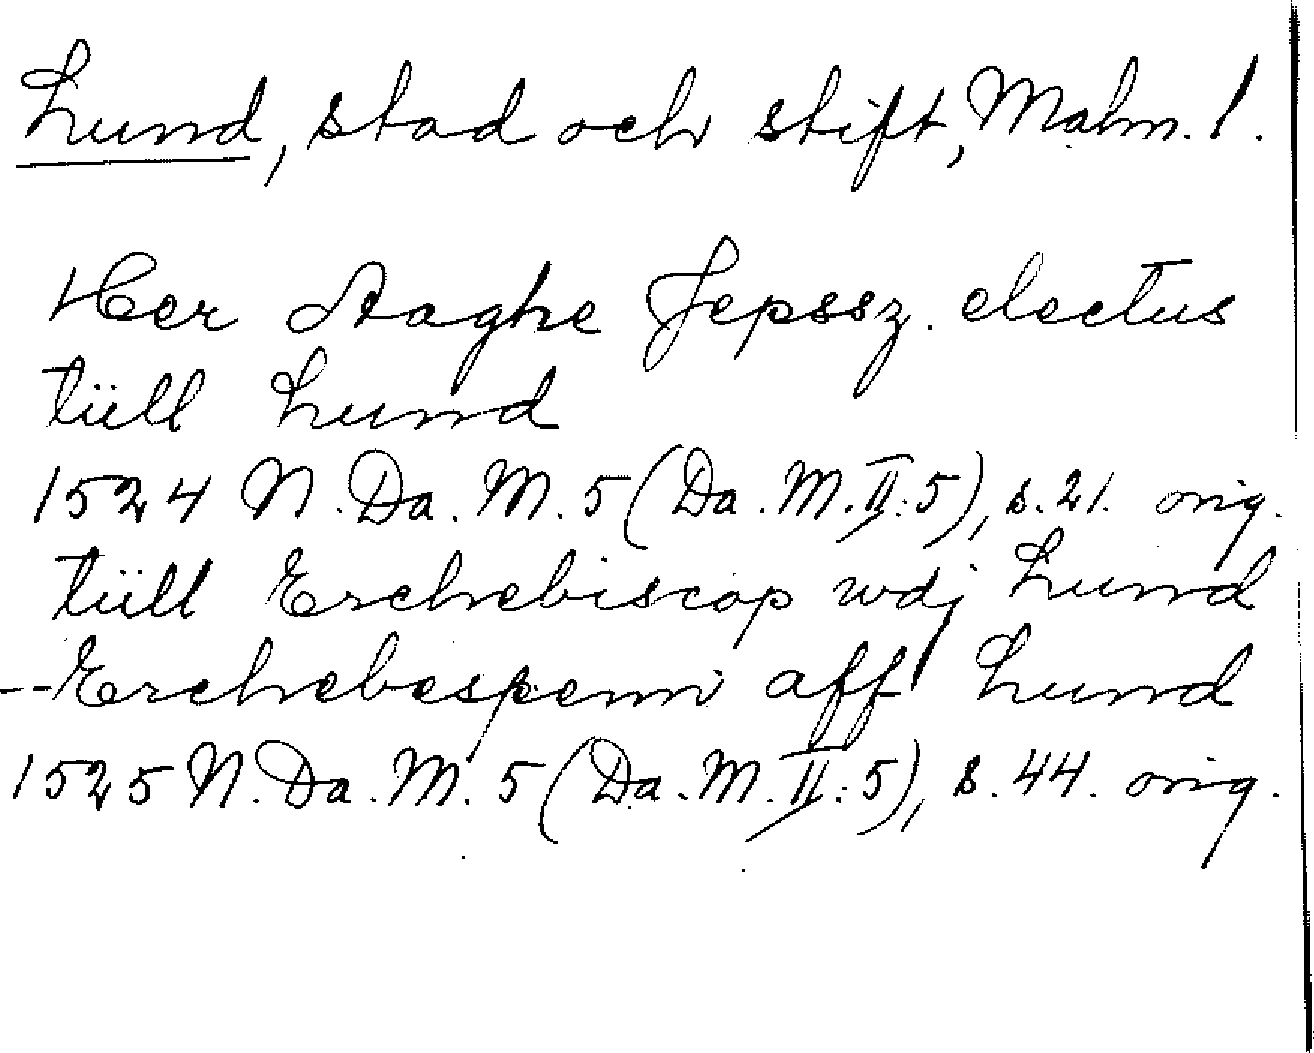 Lund, stad och stift, Malm. l.
Her Aaghe Jepssz. electus
tüll Lund
1524 N. Da. M. 5 (Da. M. II: 5), s. 21. orig.
tüll Erchebiscop wdj Lund
-- Erchebespenn aff Lund
1525 N. Da. M. 5 (Da. M. II: 5), s. 44. orig.